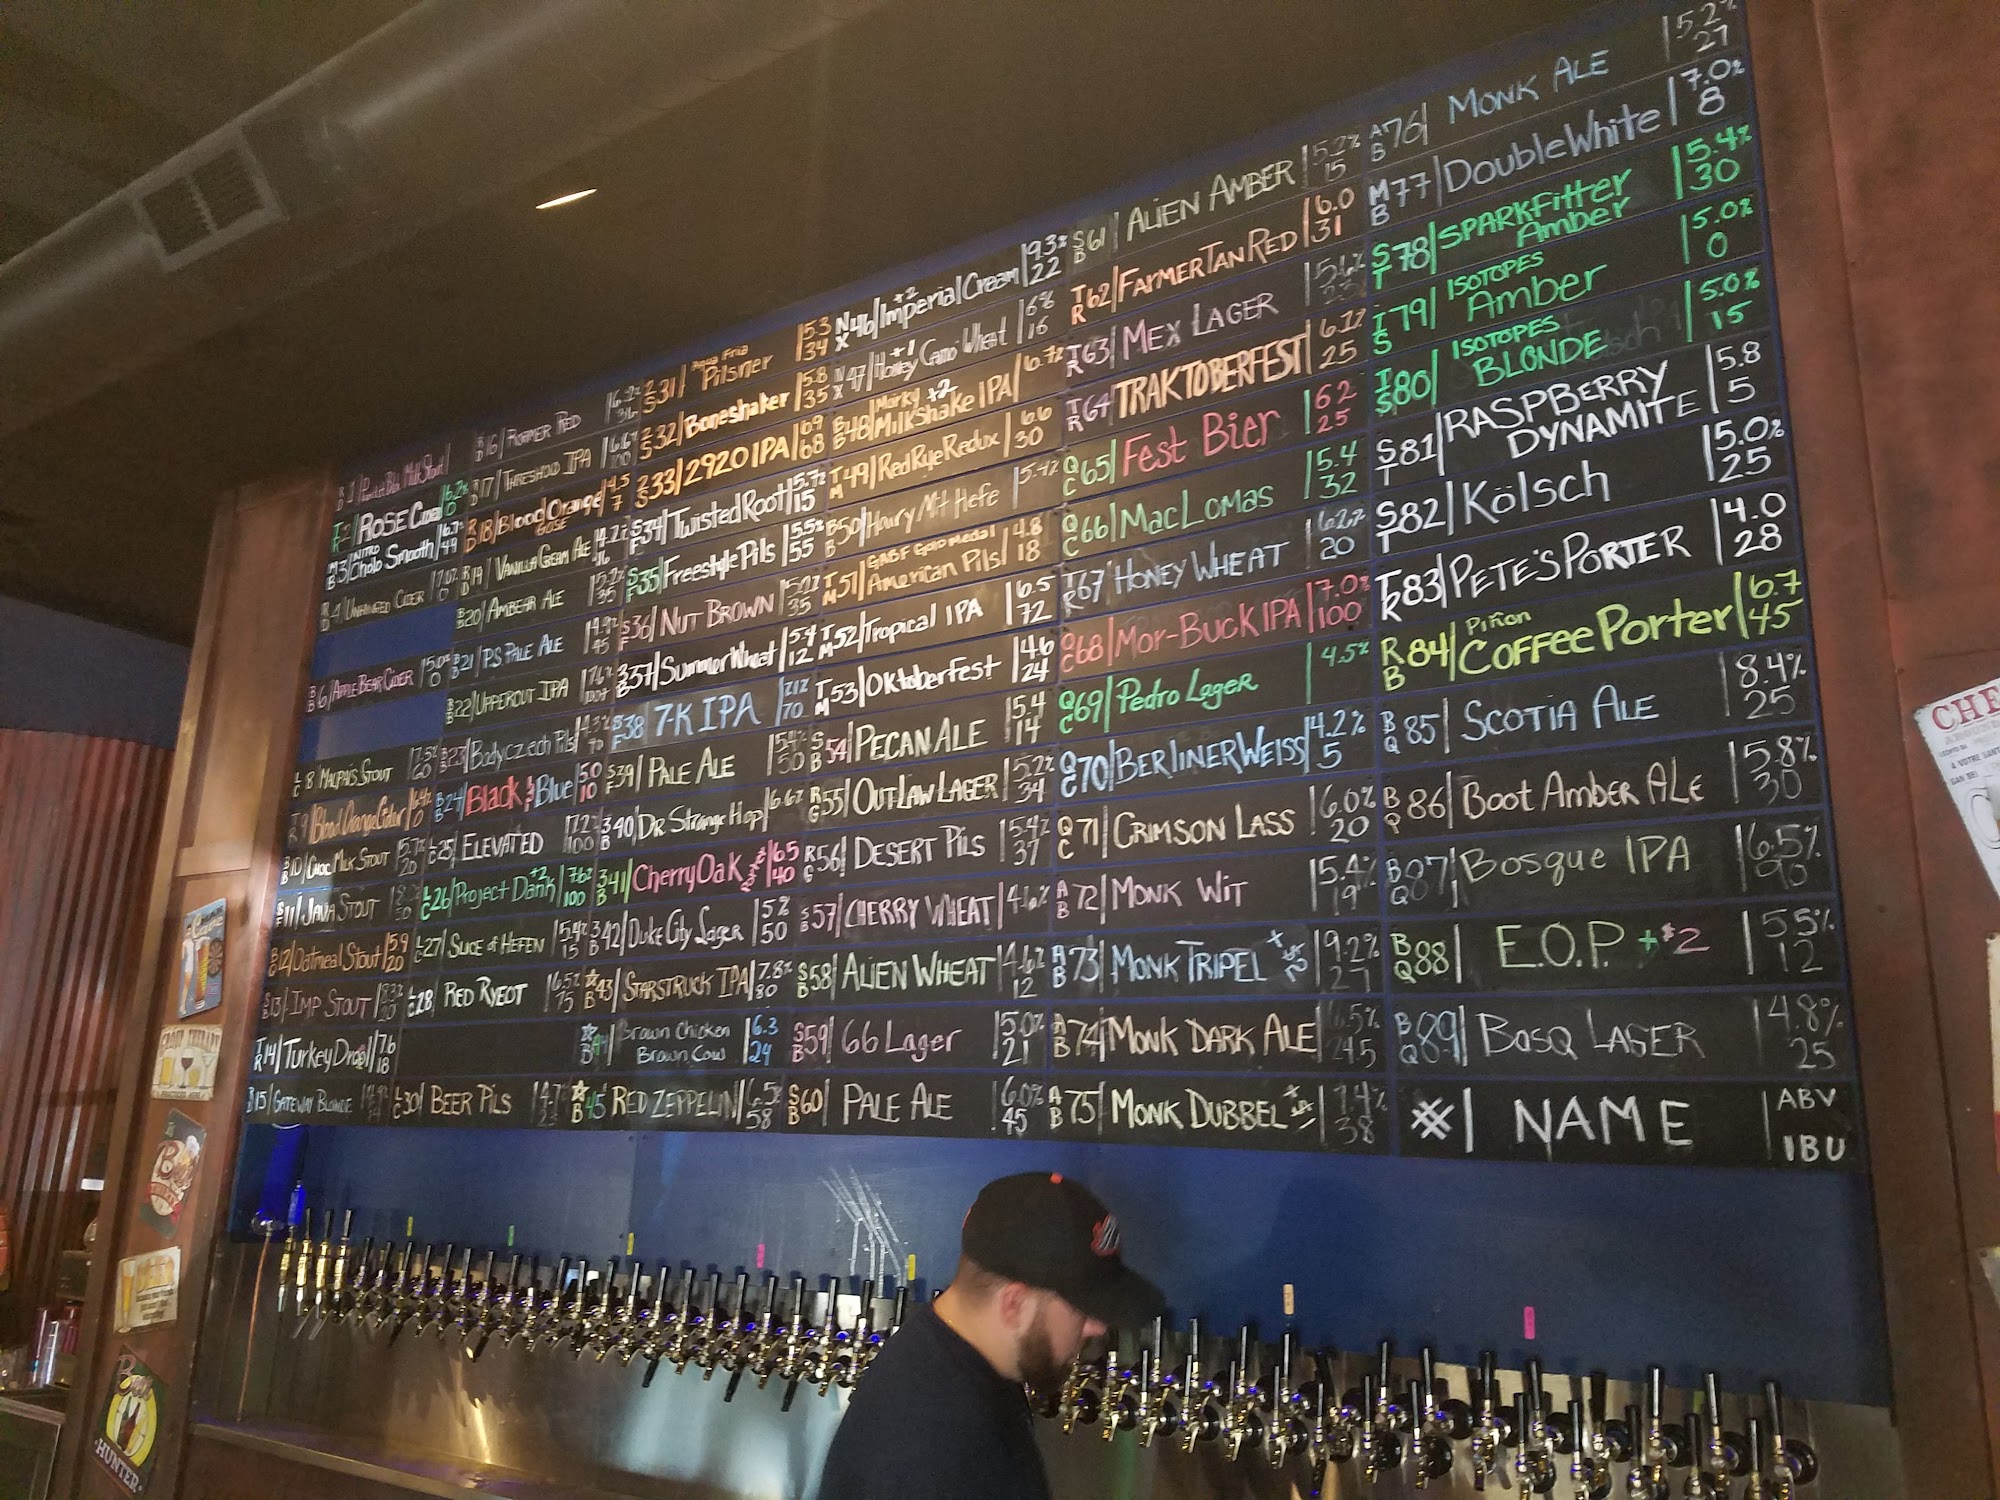 Milk Stout
T R 2 ROSE Cider 6.2% 0
M B 3 NITRO Cholo Smooth 6.7% 49
R D 4 UNHINGED CIDER 7.0% 0
B B 6 APPLE BEAR CIDER 5.0% 0
L C 8 MALPAIS STOUT 7.5% 60
T R 9 Blood Orange Cider
B B 10 CHOC MILK STOUT 5.7% 20
S F 11 JAVA STOUT
12 Oatmeal Stout 5.9 20
S B 13 IMP STOUT
T R 14 Turkey Drool 7.6 18
15 GATEWAY BLONDE
16 ROAMER RED 6.2% 36
R D 17 THRESHOLD IPA 6.6% 100
R D 18 Blood Orange GOSE 4.5 7
R D 19 VANILLA CREAM ALE
B B 20 AMBEAR ALE 5.2% 35
B B 21 P.S. PALE ALE 4.9% 45
B B 22 UPPERCUT IPA 7.6% 100+
B B 23 Body czech Pils 4.3% 40
B B 24 Black & Blue 5.0 10
L C 25 ELEVATED 7.2% 100
L C 26 Project Dank +2 7.62 100
L C 27 SLICE of HEFEN 5.4% 15
L C 28 RED RYEOT 6.5% 75
L C 30 BEER PILS 4.7%
2 S 31 Agua Fria Pilsner 5.3 34
2 S 32 Boneshaker 5.8 35
2 S 33 2920 IPA 68
S F 34 Twisted Root 5.7% 15
S F 35 Freestyle Pils 5.5% 55
S F 36 NUT BROWN 5.2% 35
3 B 37 Summer Wheat 5.4 12
S F 38 7-K IPA 7.2% 70
S F 39 PALE ALE 5.4% 50
3 B 40 Dr. Strange Hop 6.6%
3 B 41 Cherry Oak 6.5 40
3 B 42 Duke City Lager 5% 50
☆ B 43 STARSTRUCK IPA 7.8% 80
☆ B 44 Brown Chicken Brown Cow 6.3 24
☆ B 45 RED ZEPPELIN 6.5% 58
N X 46 +2 Imperial Cream 9.3% 22
N X 47 +1 Honey Camo Wheat 6% 16
48 Marky +2 MilkShake IPA 6.7%
T M 49 Red Rye Redux 6.6 30
B B 50 Hairy Mt Hefe 5.4%
T M 51 GABF Gold Medal American Pils 4.8 18
T M 52 Tropical IPA 6.5 72
T M 53 Oktoberfest 4.6 24
S B 54 PECAN ALE 5.4 14
R G 55 OUTLAW LAGER 5.2% 34
R G 56 DESERT PILS 5.4% 37
S B 57 CHERRY WHEAT 4.6%
S B 58 ALIEN WHEAT 4.6% 12
S B 59 66 Lager 5.0% 21
S B 60 PALE ALE 6.0% 45
S B 61 ALIEN AMBER 5.2% 15
T R 62 FARMER TAN RED 6.0 31
T R 63 MEX LAGER 5.6%
T R 64 TRAKTOBERFEST 6.1% 25
Q C 65 Fest Bier 6.2 25
Q C 66 MacLomas 5.4 32
T R 67 HONEY WHEAT 6.2% 20
Q C 68 Mor-Buck IPA 7.0% 100
Q C 69 Pedro Lager 4.5%
Q C 70 BERLINER WEISS 4.2% 5
Q C 71 CRIMSON LASS 6.0% 20
A B 72 MONK WIT 5.4% 19
A B 73 MONK TRIPEL 9.2% 27
A B 74 MONK DARK ALE 6.5% 24.5
A B 75 MONK DUBBEL 7.4% 38
A B 76 MONK ALE 5.2% 27
M B 77 Double White 7.0% 8
S T 78 SPARKFitter Amber 5.4% 30
I S 79 ISOTOPES Amber 5.0% 0
I S 80 ISOTOPES BLONDE 5.0% 15
S T 81 RASPBERRY DYNAMITE 5.8 5
S T 82 Kölsch 5.0% 25
T R 83 PETE'S PORTER 4.0 28
R B 84 Piñon COFFEE Porter 6.7 45
B Q 85 SCOTIA ALE 8.4% 25
B Q 86 Boot Amber ALE 5.8% 30
B Q 87 BOSQUE IPA 6.5% 90
B Q 88 E.O.P. +$2 5.5% 12
B Q 89 BOSQ LAGER 4.8% 25
# NAME ABV IBU
CHE
HUNTER